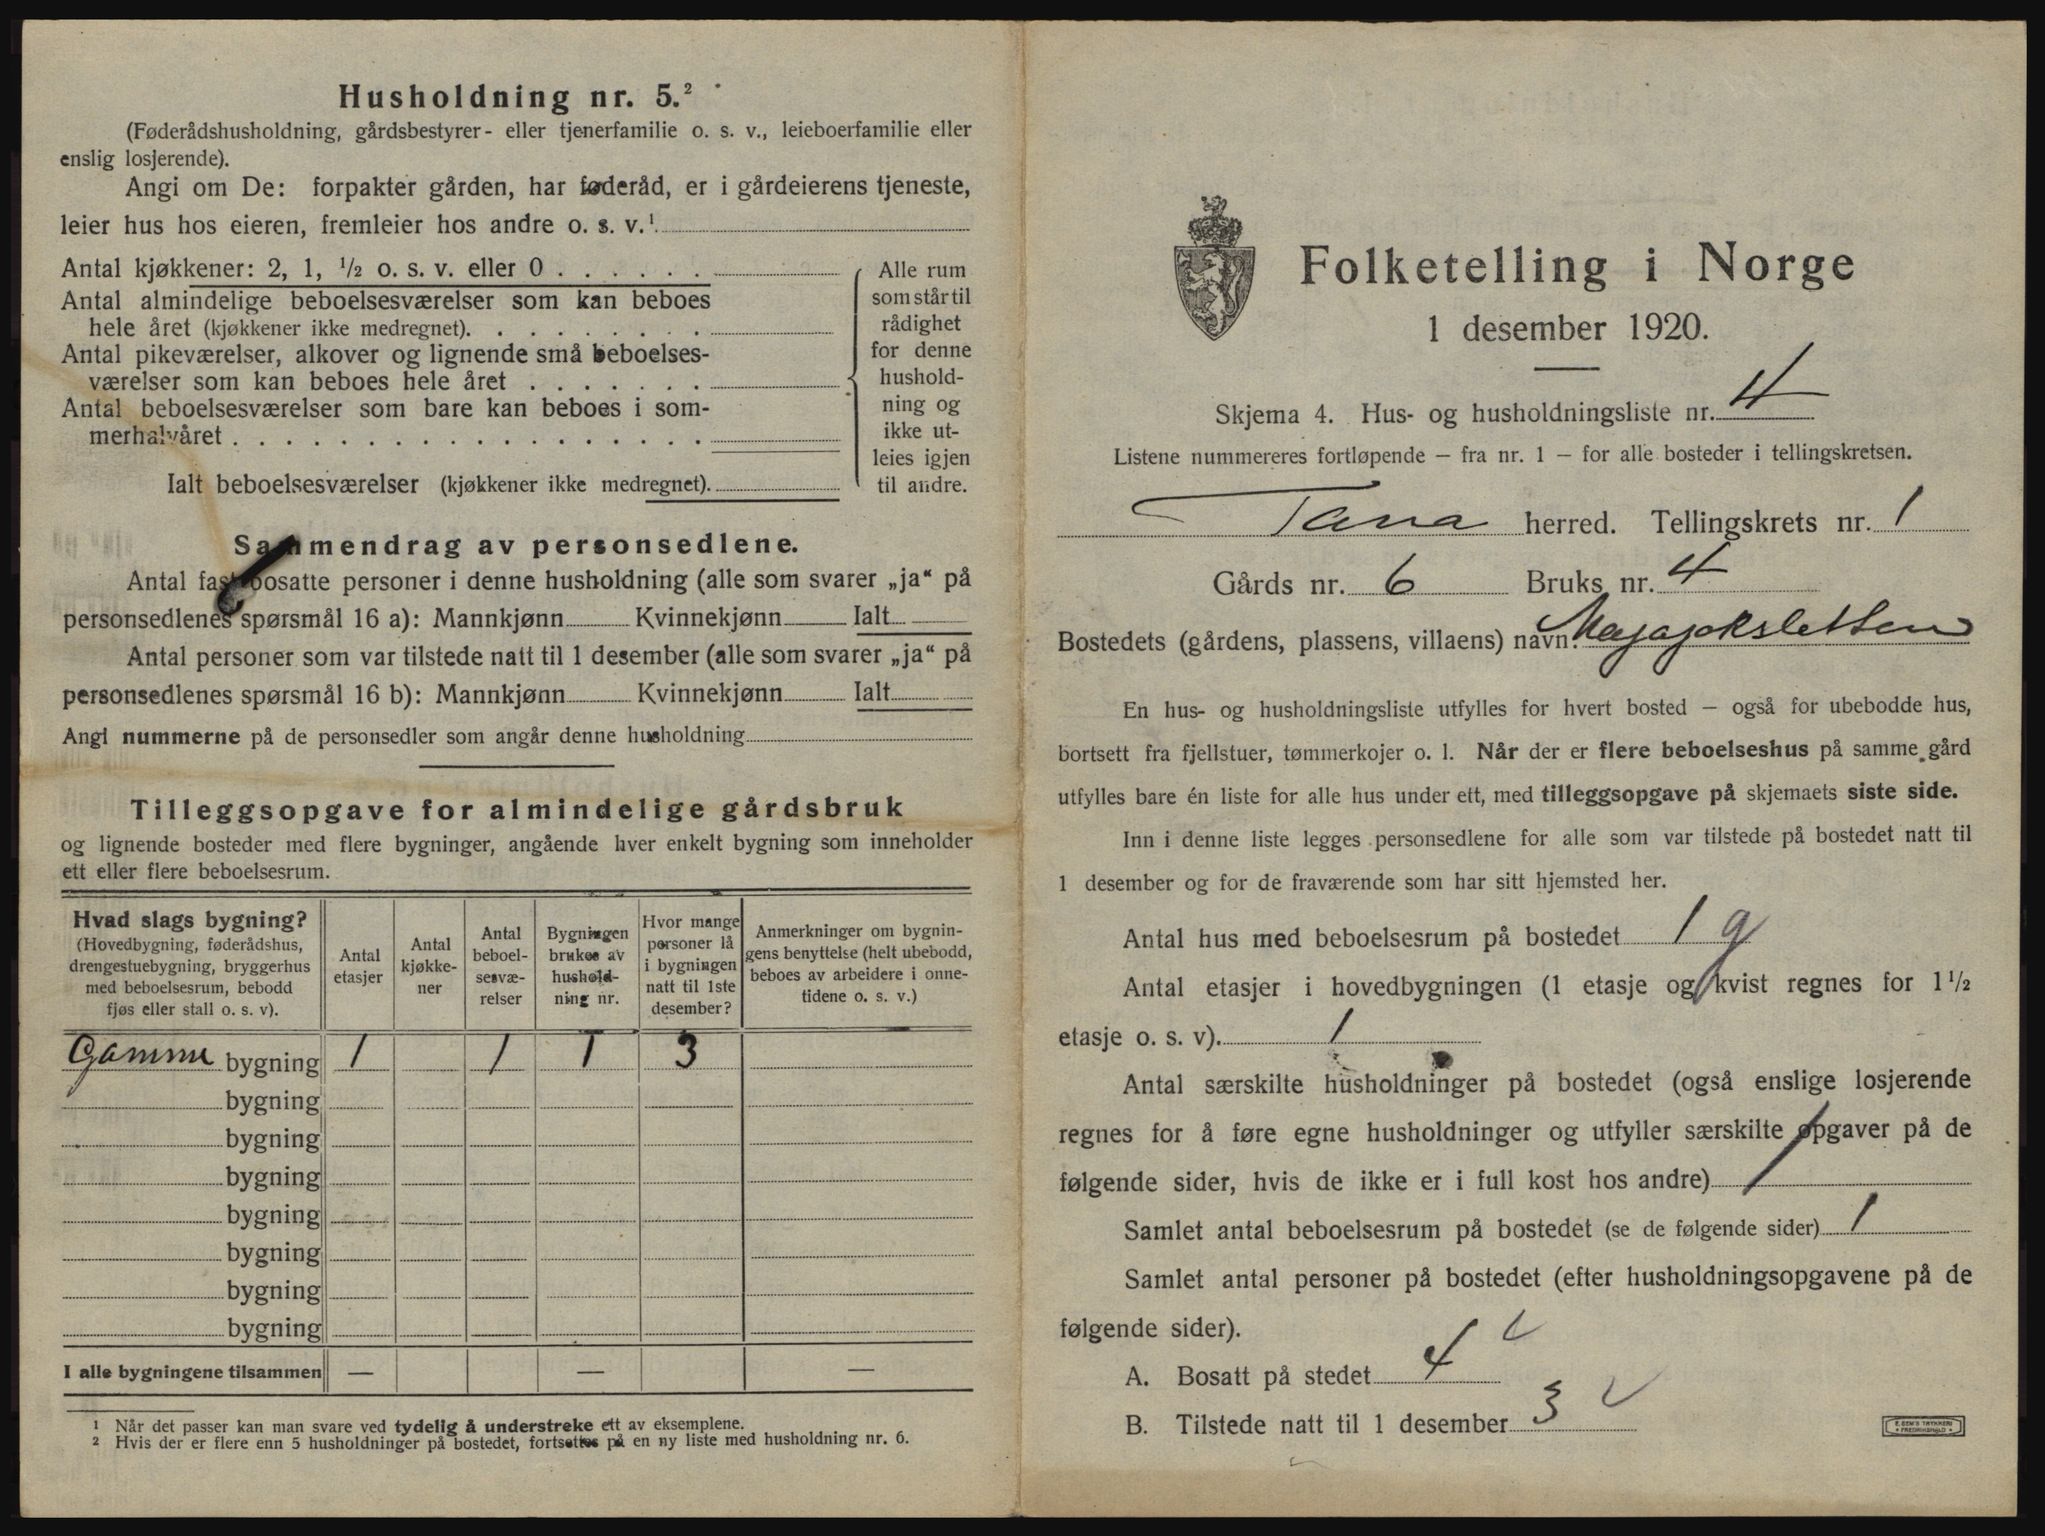 Husholdning nr. 5.²
(Føderådshusholdning, gårdsbestyrer- eller tjenerfamilie o. s. v., leieboerfamilie eller
enslig losjerende).
Angi om De: forpakter gården, har føderåd, er i gårdeierens tjeneste,
leier hus hos eieren, fremleier hos andre o. s. v.¹
Antal kjøkkener: 2, 1, ½ o. s. v. eller 0 . . . . . .
Antal almindelige beboelsesværelser som kan beboes
hele året (kjøkkener ikke medregnet). . . . . . . . .
Antal pikeværelser, alkover og lignende små beboelses-
værelser som kan beboes hele året . . . . . . .
Antal beboelsesværelser som bare kan beboes i som-
merhalvåret . . . . . . . . . . . . . . . . . .
Ialt beboelsesværelser (kjøkkener ikke medregnet).
Alle rum
som står til
rådighet
for denne
hushold-
ning og
ikke ut-
leies igjen
til andre.
Sammendrag av personsedlene.
Antal fast bosatte personer i denne husholdning (alle som svarer „ja“ på
personsedlenes spørsmål 16 a): Mannkjønn Kvinnekjønn Ialt
Antal personer som var tilstede natt til 1 desember (alle som svarer „ja“ på
personsedlenes spørsmål 16 b): Mannkjønn Kvinnekjønn Ialt
Angi nummerne på de personsedler som angår denne husholdning
Tilleggsopgave for almindelige gårdsbruk
og lignende bosteder med flere bygninger, angående hver enkelt bygning som inneholder
ett eller flere beboelsesrum.
Hvad slags bygning?
(Hovedbygning, føderådshus,
drengestuebygning, bryggerhus
med beboelsesrum, bebodd
fjøs eller stall o. s. v).
Antal
etasjer
Antal
kjøkke-
ner
Antal
beboel-
sesvæ-
relser
Bygningen
brukes av
hushold-
ning nr.
Hvor mange
personer lå
i bygningen
natt til 1ste
desember?
Anmerkninger om bygnin-
gens benyttelse (helt ubebodd,
beboes av arbeidere i onne-
tidene o. s. v.)
Gamme bygning 1 1 1 3
bygning
bygning
bygning
bygning
bygning
bygning
bygning
I alle bygningene tilsammen — — —
¹ Når det passer kan man svare ved tydelig å understreke ett av eksemplene.
² Hvis der er flere enn 5 husholdninger på bostedet, fortsettes på en ny liste med husholdning nr. 6.
Folketelling i Norge
1 desember 1920.
Skjema 4. Hus- og husholdningsliste nr. 4
Listene nummereres fortløpende — fra nr. 1 — for alle bosteder i tellingskretsen.
Tana herred. Tellingskrets nr. 1
Gårds nr. 6 Bruks nr. 4
Bostedets (gårdens, plassens, villaens) navn. Majajoksletten
En hus- og husholdningsliste utfylles for hvert bosted — også for ubebodde hus,
bortsett fra fjellstuer, tømmerkojer o. l. Når der er flere beboelseshus på samme gård
utfylles bare én liste for alle hus under ett, med tilleggsopgave på skjemaets siste side.
Inn i denne liste legges personsedlene for alle som var tilstede på bostedet natt til
1 desember og for de fraværende som har sitt hjemsted her.
Antal hus med beboelsesrum på bostedet 1 g
Antal etasjer i hovedbygningen (1 etasje og kvist regnes for 1½
etasje o. s. v). 1
Antal særskilte husholdninger på bostedet (også enslige losjerende
regnes for å føre egne husholdninger og utfyller særskilte opgaver på de
følgende sider, hvis de ikke er i full kost hos andre) 1
Samlet antal beboelsesrum på bostedet (se de følgende sider) 1
Samlet antal personer på bostedet (efter husholdningsopgavene på de
følgende sider).
A. Bosatt på stedet 4
B. Tilstede natt til 1 desember 3
E. SEM'S TRYKKERI
FREDRIKSHALD